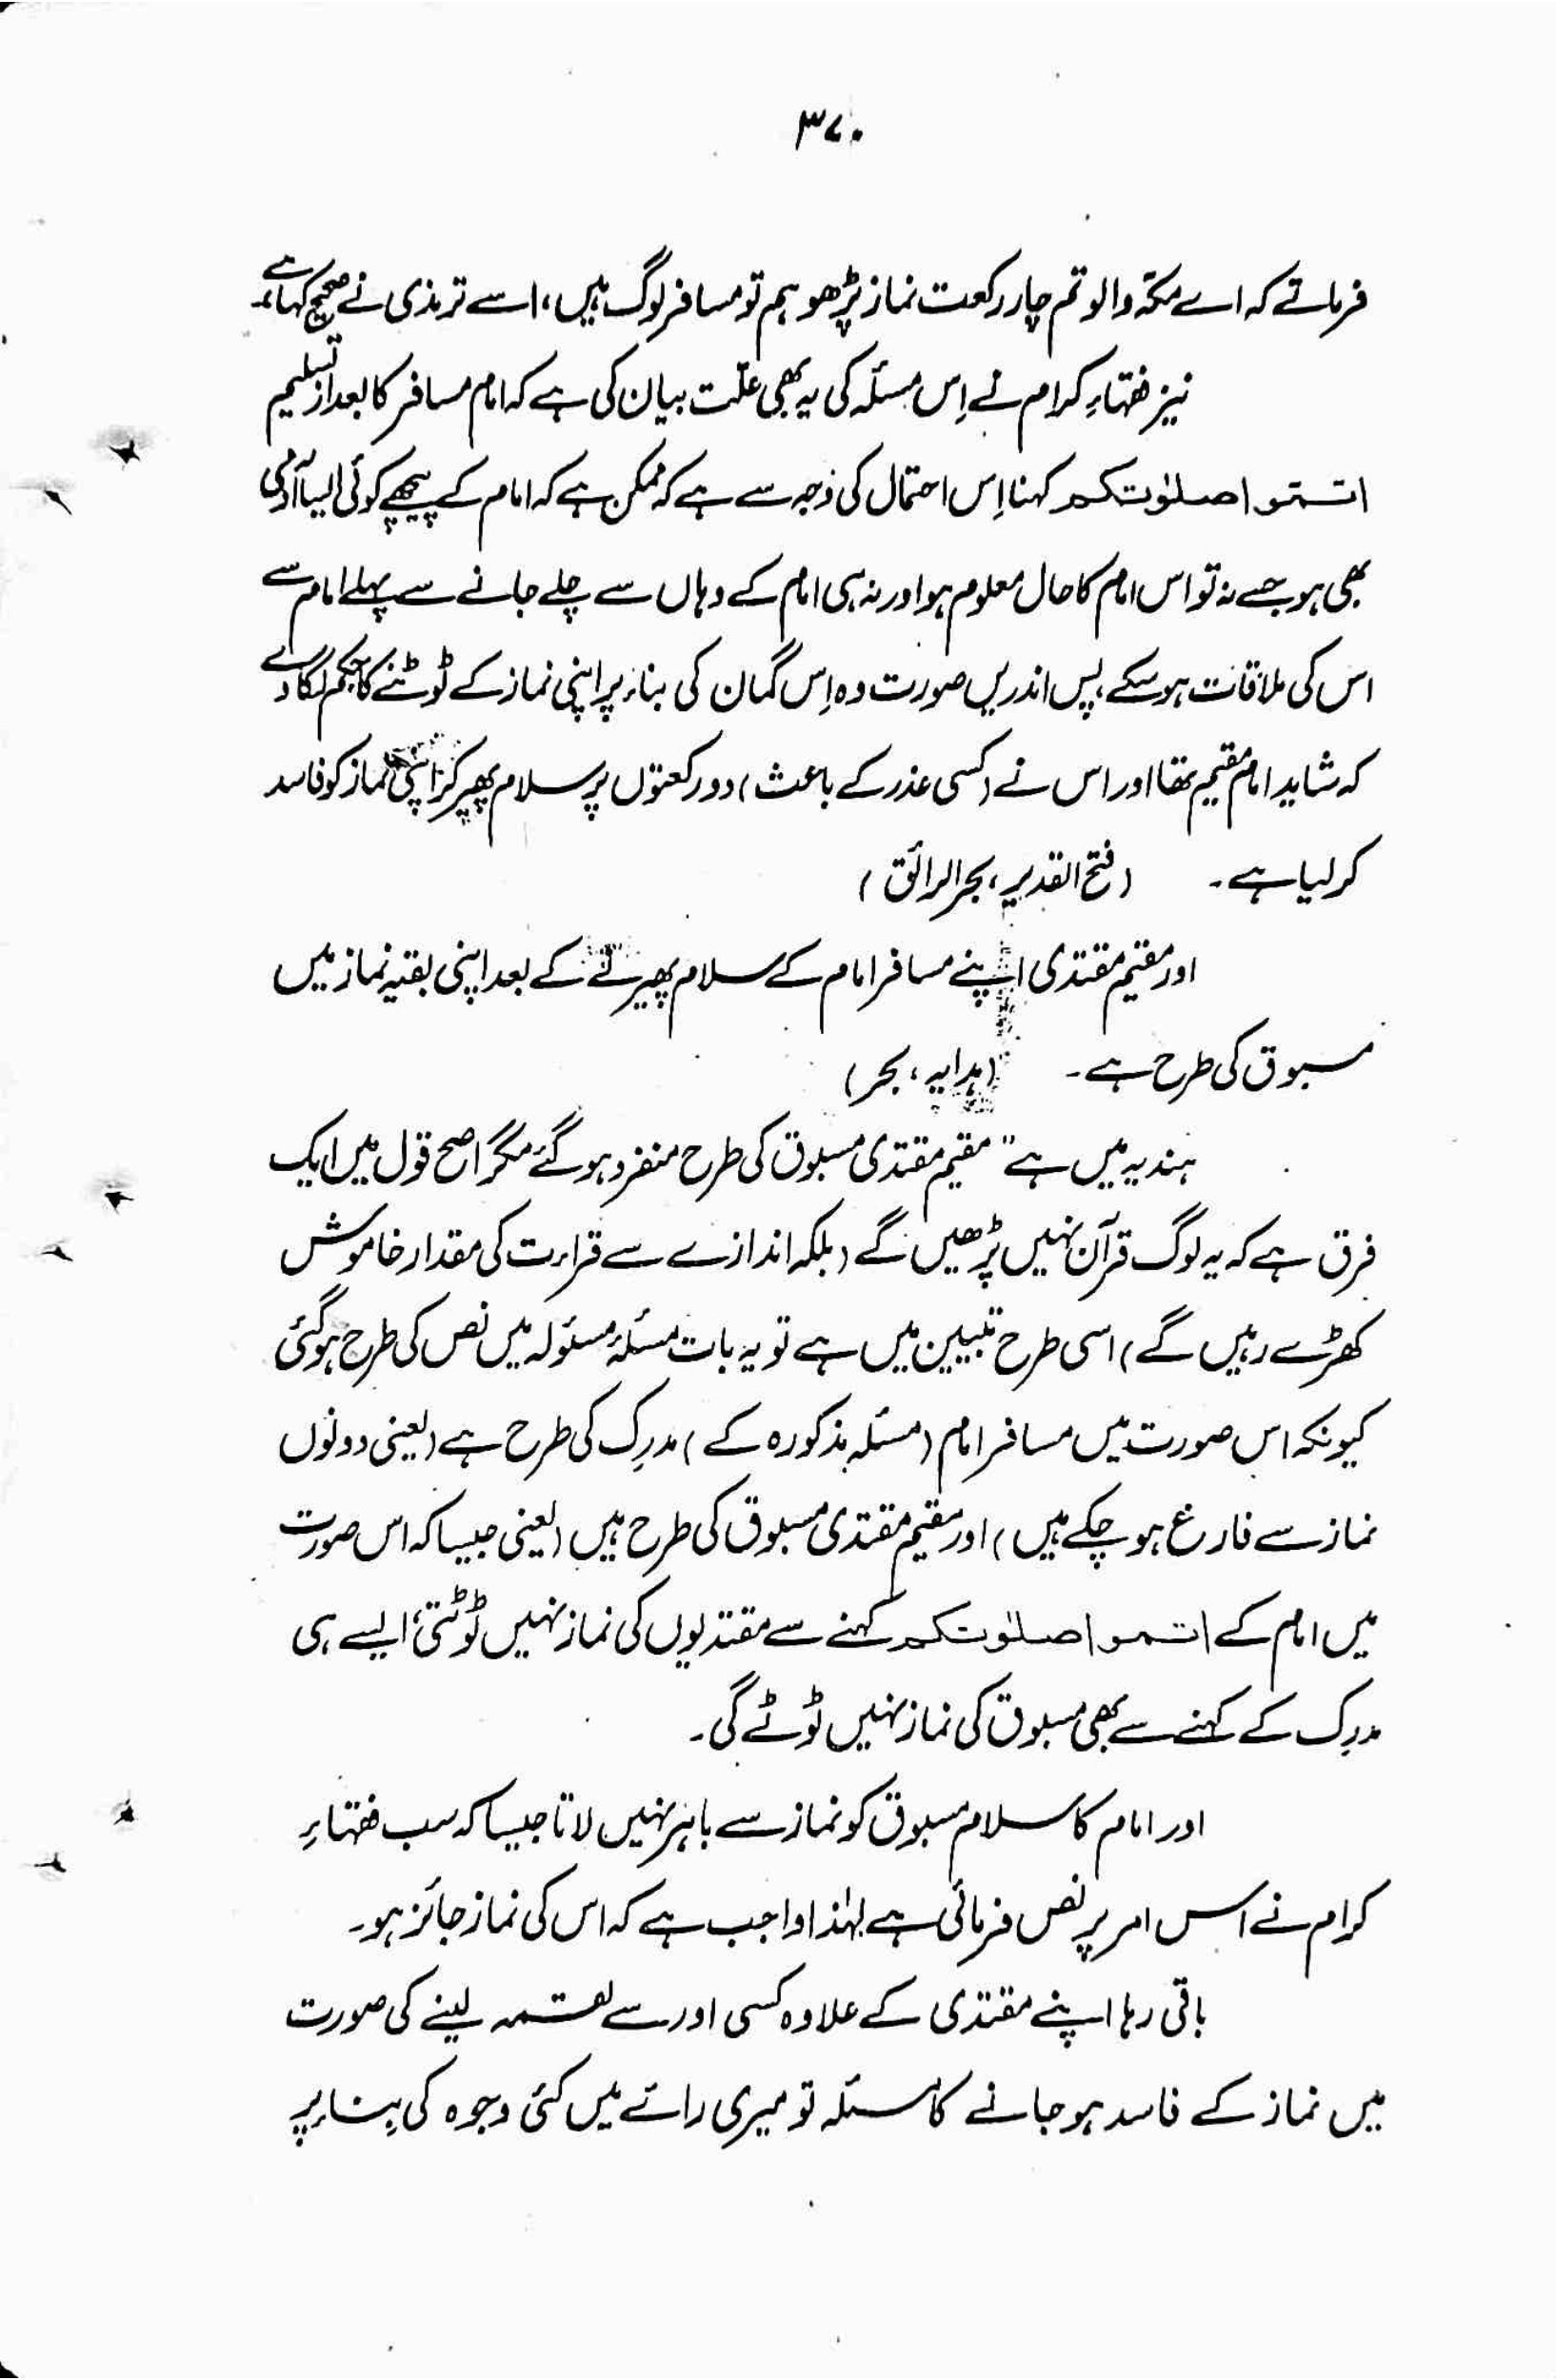 ۳۷۰
فرماتے کہ اے مکّہ والو تم چار رکعت نماز پڑھو ہم تو مسافر لوگ ہیں، اسے ترمذی نے صحیح کہا ہے۔
نیز فقہاءِ کرام نے اِس مسئلہ کی یہ بھی علّت بیان کی ہے کہ امام مسافر کا بعد از تسلیم
اتمّوا صلوٰتکم کہنا اِس احتمال کی وجہ سے ہے کہ ممکن ہے کہ امام کے پیچھے کوئی ایسا آدمی
بھی ہو جسے نہ تو اس امام کا حال معلوم ہو اور نہ ہی امام کے وہاں سے چلے جانے سے پہلے امام سے
اس کی ملاقات ہو سکے، پس اندریں صورت وہ اِس گمان کی بناء پر اپنی نماز کے ٹوٹنے کا حکم لگا دے
کہ شاید امام مقیم تھا اور اس نے (کسی عذر کے باعث) دو رکعتوں پر سلام پھیر کر اپنی نماز کو فاسد
کر لیا ہے۔ (فتح القدیر، بحر الرائق)
اور مقیم مقتدی اپنے مسافر امام کے سلام پھیرنے کے بعد اپنی بقیہ نماز میں
مسبوق کی طرح ہے۔ (ہدایہ، بحر)
ہندیہ میں ہے " مقیم مقتدی مسبوق کی طرح منفرد ہو گئے مگر اصح قول میں ایک
فرق ہے کہ یہ لوگ قرآن نہیں پڑھیں گے (بلکہ اندازے سے قراءت کی مقدار خاموش
کھڑے رہیں گے) اسی طرح تبیین میں ہے تو یہ بات مسئلہ مسئولہ میں نص کی طرح ہو گئی
کیونکہ اس صورت میں مسافر امام (مسئلہ مذکورہ کے) مدرِک کی طرح ہے (یعنی دونوں
نماز سے فارغ ہو چکے ہیں) اور مقیم مقتدی مسبوق کی طرح ہیں (یعنی جیسا کہ اس صورت
میں امام کے اتموا صلوٰتکم کہنے سے مقتدیوں کی نماز نہیں ٹوٹتی، ایسے ہی
مدرِک کے کہنے سے بھی مسبوق کی نماز نہیں ٹوٹے گی۔
اور امام کا سلام مسبوق کو نماز سے باہر نہیں لاتا جیسا کہ سب فقہاءِ
کرام نے اس امر پر نص فرمائی ہے لہٰذا واجب ہے کہ اس کی نماز جائز ہو۔
باقی رہا اپنے مقتدی کے علاوہ کسی اور سے لقمہ لینے کی صورت
میں نماز کے فاسد ہو جانے کا مسئلہ تو میری رائے میں کئی وجوہ کی بِناء پر